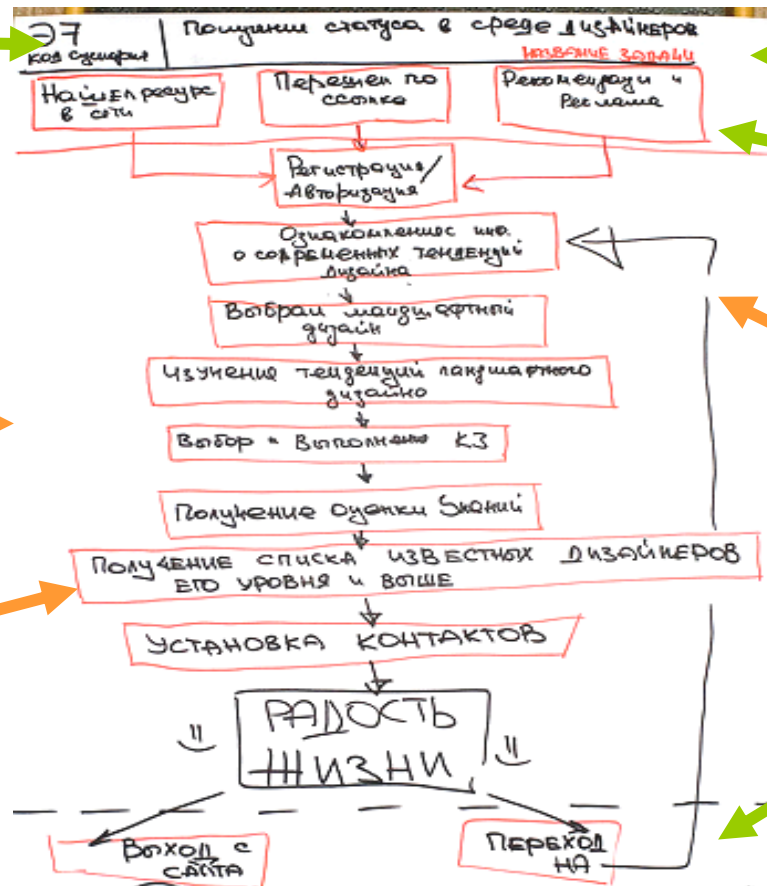 Э7
код сценария
Получении статуса в среде дизайнеров
название задачи
Нашел ресурс
в сети
Перешел по
ссылке
Рекомендации и
Реклама
Регистрация/
Авторизация
Ознакомление с инф.
о современных тенденций
дизайна
Выбрал ландшафтный
дизайн
Изучение тенденций ландшафтного
дизайно
Выбор и Выполнение КЗ
Получение оценки знаний
Получение списка известных дизайнеров
его уровня и выше
Установка контактов
РАДОСТЬ
ЖИЗНИ
Выход с
сайта
Переход
на